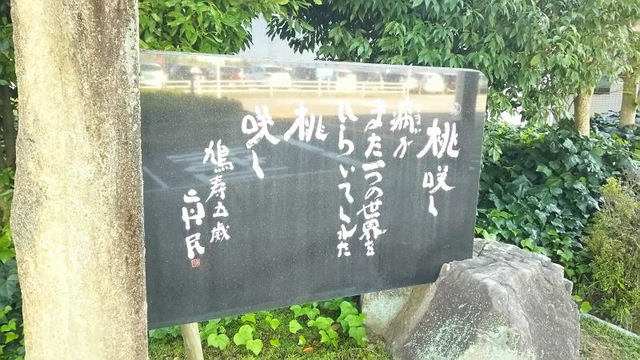 桃咲く
病が
また一つの世界を
ひらいてくれた
桃
咲く
鳩寿五歳
真民